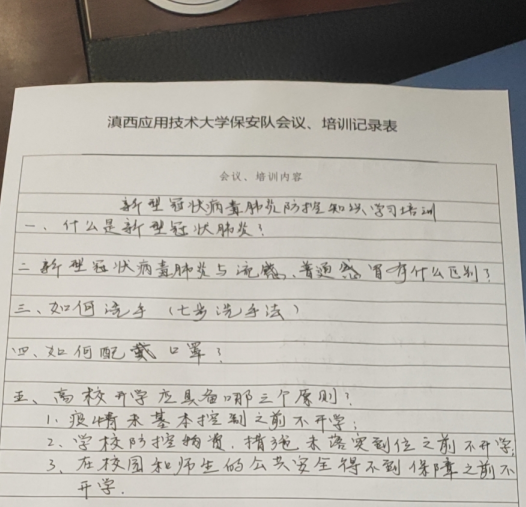 滇西应用技术大学保安队会议、培训记录表
会议、培训内容
新型冠状病毒肺炎防控知识学习培训
一、什么是新型冠状肺炎？
二、新型冠状病毒肺炎与流感、普通感冒有什么区别？
三、如何洗手（七步洗手法）
四、如何配戴口罩？
五、高校开学应具备哪三个原则？
1、疫情未基本控制之前不开学；
2、学校防控物资、措施未落实到位之前不开学；
3、在校园和师生的公共安全得不到保障之前不
开学.